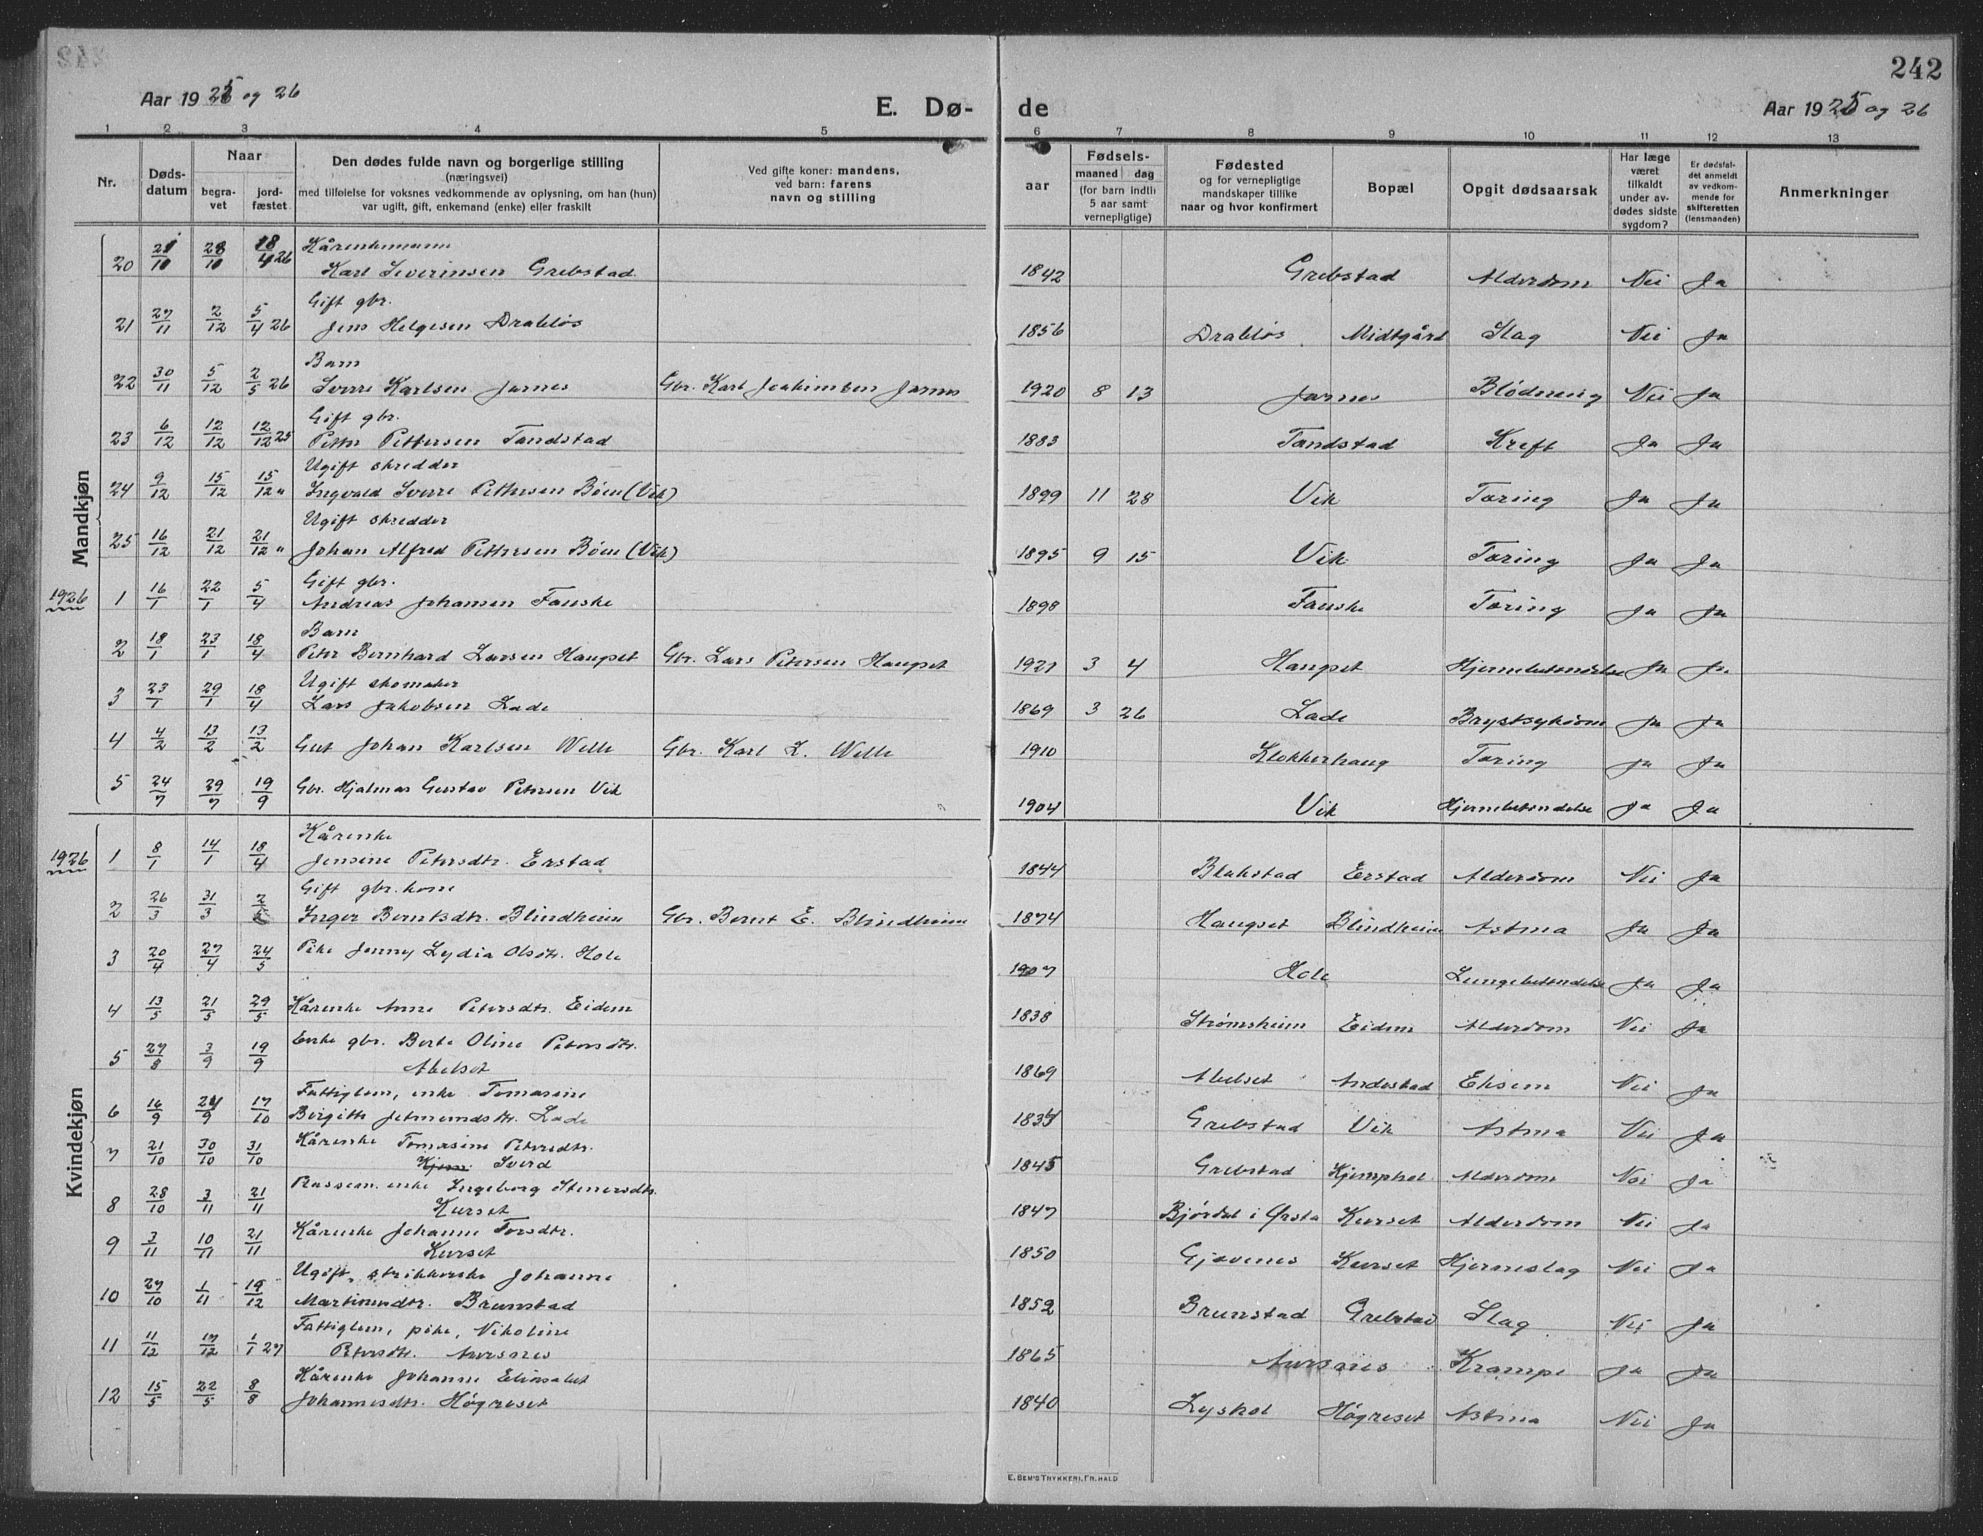 242
Aar 1925 og 26
E. Dø- de
Aar 1925 og 26
1 2 3 4 5 6 7 8 9 10 11 12 13
Nr.
Døds-datum
Naar
begra-vet
jord-fæstet
Den dødes fulde navn og borgerlige stilling
(næringsvei)
med tilføielse for voksnes vedkommende av oplysning, om han (hun)
var ugift, gift, enkemand (enke) eller fraskilt
Ved gifte koner: mandens,
ved barn: farens
navn og stilling
Fødsels-
aar
maaned dag
(for barn indtil
5 aar samt
vernepligtige)
Fødested
og for vernepligtige
mandskaper tillike
naar og hvor konfirmert
Bopæl
Opgit dødsaarsak
Har læge
været
tilkaldt
under av-
dødes sidste
sygdom?
Er dødsfal-
det anmeldt
av vedkom-
mende for
skifteretten
(lensmanden)
Anmerkninger
Mandkjøn
Kårenkemann
20 21/10 28/10 18/4 26 Karl Severinsen Grebstad 1842 Grebstad Alderdom Nei Ja
Gift gbr.
21 27/11 2/12 5/4 26 Jens Helgesen Drabløs 1856 Drabløs Midtgård Slag Nei Ja
Barn
22 30/11 5/12 2/5 26 Sverre Karlsen Jarnes Gbr. Karl Joakimsen Jarnes 1920 8 13 Jarnes Blødning Nei Ja
Gift gbr.
23 6/12 12/12 12/12 25 Petter Pettersen Tandstad 1883 Tandstad Kreft Ja Ja
Ugift skredder
24 9/12 15/12 15/12 " Ingvald Sverre Pettersen Bøen (Vik) 1899 11 28 Vik Tæring Ja Ja
Ugift skredder
25 16/12 21/12 21/12 " Johan Alfred Pettersen Bøen (Vik) 1895 9 15 Vik Tæring Ja Ja
Gift gbr.
1926 1 16/1 22/1 5/4 Andreas Johansen Fauske 1898 Fauske Tæring Ja Ja
Barn
2 18/1 23/1 18/4 Peter Bernhard Larsen Haugset Gbr. Lars Petersen Haugset 1921 3 4 Haugset Hjernebetændelse Ja Ja
Ugift skomaker
3 23/1 29/1 18/4 Lars Jakobsen Lade 1869 3 26 Lade Brystsykdom Ja Ja
4 4/2 13/2 13/2 Gut Johan Karlsen Welle Gbr. Karl L. Welle 1910 Klokkerhaug Tæring Ja Ja
5 24/7 29/7 19/9 Gbr. Hjalmar Gustav Petersen Vik 1904 Vik Hjernebetændelse Ja Ja
Kvindekjøn
Kårenke
1926 1 8/1 14/1 18/4 Jensine Petersdtr. Erstad 1844 Blakstad Erstad Alderdom Nei Ja
Gift gbr. kone
2 26/3 31/3 2/5 Inger Berntsdtr. Blindheim Gbr. Bernt E. Blindheim 1874 Haugset Blindheim Astma Ja Ja
3 20/4 27/4 24/5 Pike Jenny Lydia Olsdtr. Hole 1907 Hole Lungebetændelse Ja Ja
4 13/5 21/5 29/5 Kårenke Anne Petersdtr. Eidem 1838 Strømsheim Eidem Alderdom Nei Ja
Enke gbr. Berte Oline Petersdtr.
5 27/8 3/9 19/9 Abelset 1869 Abelset Andestad Eksem Nei Ja
Fattiglem, enke Tomasine
6 16/9 24/9 17/10 Birgitte Jetmundsdtr. Lade 1835 Grebstad Vik Astma Nei Ja
Kårenke Tomasine Petersdtr.
7 21/10 30/10 31/10 Sverd 1845 Grebstad Kjemphol Alderdom Nei Ja
enke Ingeborg Steinersdtr.
8 28/10 3/11 21/11 Kurset 1847 Bjørdal i Ørsta Kurset Alderdom Nei Ja
Kårenke Johanne Torsdtr.
9 3/11 10/11 21/11 Kurset 1850 Gjævenes Kurset Hjerneslag Nei Ja
Ugift, strikkerske Johanne
10 27/10 1/11 19/12 Martinusdtr. Brunstad 1852 Brunstad Grebstad Slag Nei Ja
Fattiglem, pike, Nikoline
11 11/12 17/12 1/1 27 Petersdtr. Aursnes 1865 Aursnes Krampe Ja Ja
Kårenke Johanne Elisabet
12 15/5 22/5 8/8 Johannesdtr. Høgreset 1840 Lyshol Høgreset Astma Nei Ja
E. SEM'S TRYKKERI, FR. HALD